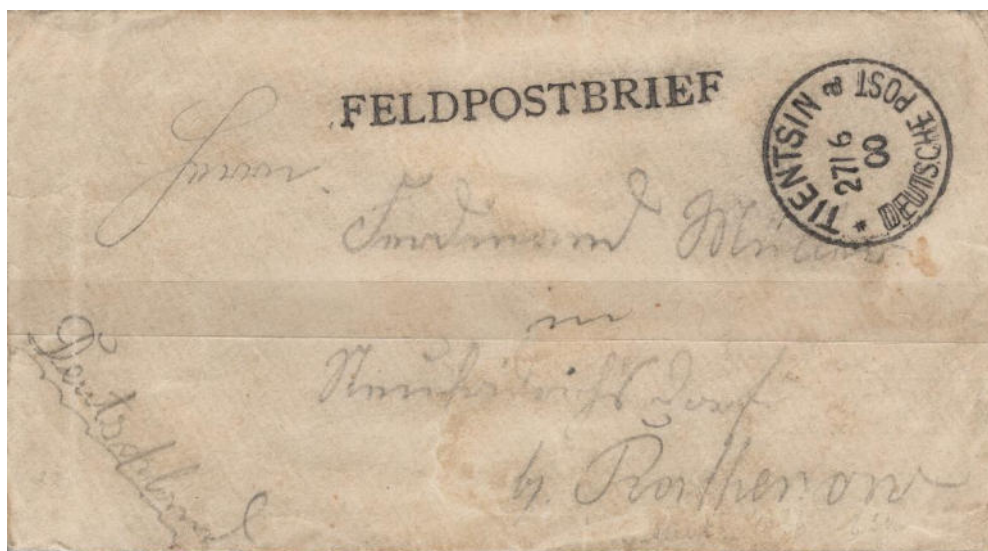 FELDPOSTBRIEF
TIENTSIN a
* DEUTSCHE POST
27/6
8
Herrn
Ferdinand Müller
in
b. Rathenow
Deutschland